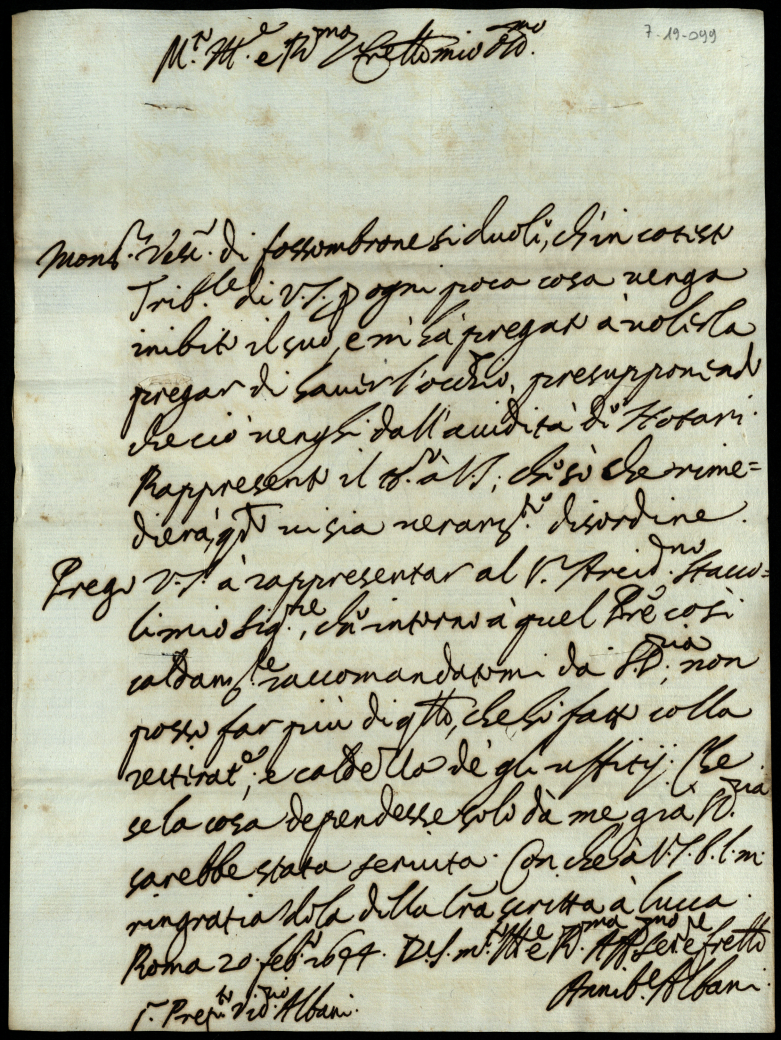 7-19-099
M.to Ill.e e R.mo Frello mio oss.mo
Mons.r Vesc.o di fossombrone si duole, ch'in cotesto
Trib.le di V.S. p ogni poca cosa venga
inibito il suo, e m'ha pregato à volerla
pregar di haver l'occhio, presupponendo
che ciò venghi dall'avidità di Notari.
Rappresento il tutto à V.S., che sò che rime=
dierà, q.do vi sia veram.te disordine.
Prego V.S. à rappresentar al S.r Arcid.no Stacco=
li mio Sig.re, che intorno à quel Prete così
caldam.te raccomandatomi da S.S.ria, non
posso far più di q.llo, che hò fatto colla
reiterat.e, e caldezza de gli uffitij. Che
se la cosa dependesse solo dà me, già S.S.ria
sarebbe stata servita. Con che à V.S. b.l.m.
ringratiandola della lra scritta à Lucca.
Roma 20 feb.ro 1694. D.V.S. m.to Ill.e e R.ma Aff.mo se.re e frello
Annib.e Albani.
S.r Prep.to Vic.o Albani.